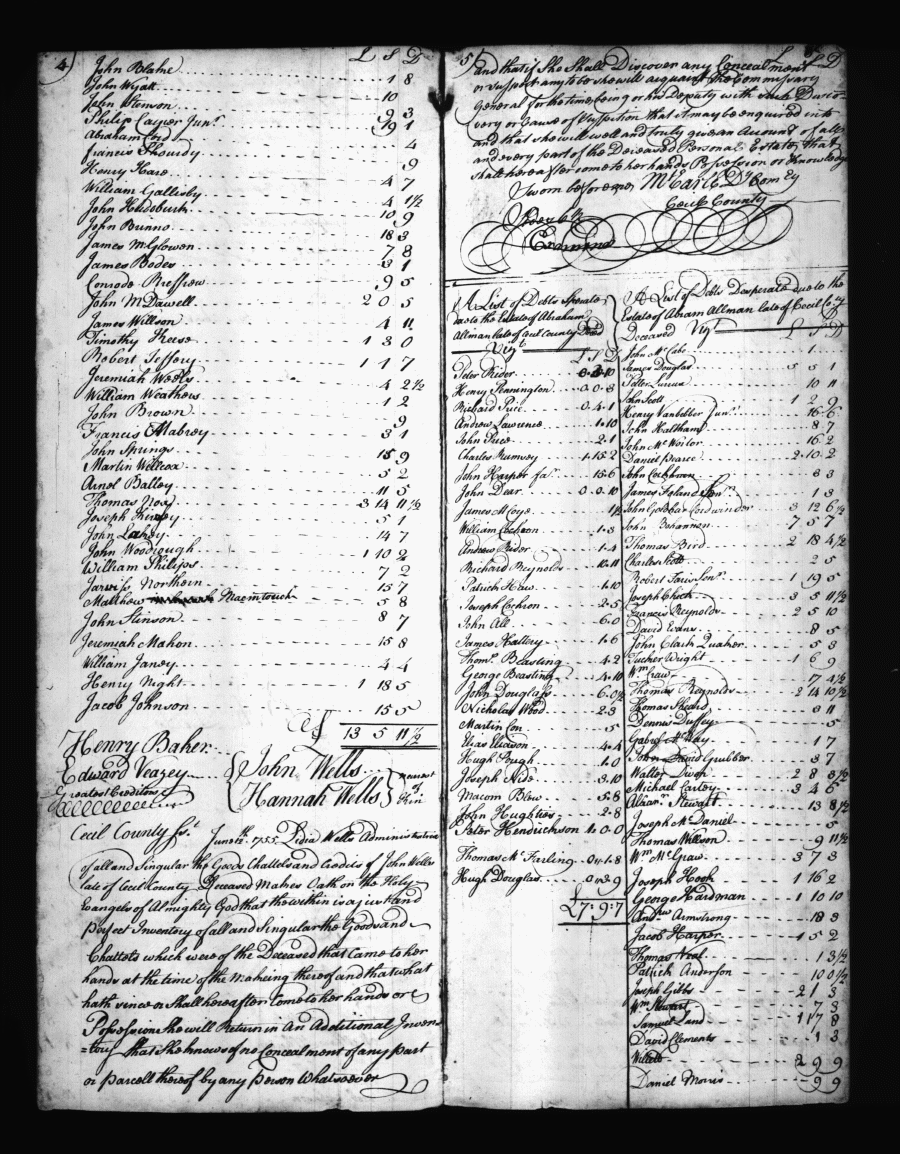 4)
L S D
John Blane 1 8
John Wyatt 10
John Stenson 9 3
Philip Cazier Junr. 19 1
Abraham Cox 4
Francis 9
Henry Hare 4 7
William Gallisby 4 1½
John 10 9
John Bunno 18 3
James McGlowen 7 8
James Boder 3 1
Conrode 9 5
John McDawell 2 0 5
James Willson 4 11
Timothy Reese 1 3 0
Robert Jeffery 1 1 7
Jeremiah 4 2½
William Weathers 1 2
John Brown 9
Francis Mabrey 3 1
John Springs 15 9
Martin Willcox 5 2
Arnol Balley 11 5
Thomas Nox 3 14 11½
Joseph 5 1
John Lahey 14 7
John Woodrough 1 10 2
William Philips 7 2
Jarviss Northern 15 7
Matthew Macmtouch 5 8
John Stinson 8 7
Jeremiah Mahon 15 8
William Janey 4 4
Henry Night 1 18 5
Jacob Johnson 15 5
£ 13 5 11½
Henry Baker
Edward Veazey
Greatest Creditors
John Wells
Hannah Wells
nearest of Kin
Cecil County Sst. June 1755. Lidia Wells Administratrix
of all and Singular the Goods Chattels and Credits of John Wells
late of Cecil County Deceased Makes Oath on the Holy
Evangels of Almighty God that the within is a just and
Perfect Inventory of all and Singular the Goods and
Chattels which were of the Deceased that Came to her
hands at the time of the Makeing thereof and that what
hath since or Shall hereafter Come to her hands or
Possession She will Return in An Additional Inven
=tory that She knows of no Concealment of any part
or parcell thereof by any Person Whatsoever
5)
and that if She Shall Discover any Concealment
or suspect any to be she will acquaint the Commissary
General for the time being or his Deputy with such Disco
very or Cause of Suspition that it may be enquired into
and that she will well and truly give an Account of all
and every part of the Deceased Personal Estate that
shall hereafter come to her hands Possession or Knowledge
Sworn before me M Earle Dy Com Ey
Cecil County
Examined
A List of Debts Sperate
due to the Estate of Abraham
Allman late of County Deced
Vizt.
L S D
Peter Rider 0 10
Henry Pennington 0. 0. 8
Richard Price 0. 4. 1
Andrew Lawrence 1. 10
John Price 2. 1
Charles Rumsey 1. 15. 2
John Harper 15. 6
John Dear 0. 0. 10
James McCoye 1½
William Cochron 1. 3
Andrew Rider 1. 4
Richard Reynolds 10. 11
Patrick Haw 1. 10
Joseph Cochron 2. 5
John All 6. 0
James Hattery 1. 6
Thoms. Beasting 4. 2
George Beasting 4. 10
John Douglass 6. 0½
Nicholas Wood 2. 3
Martin Con 5
Elias Eliason 4. 4
Hugh Pough 1. 0
Joseph Hide 3. 10
Macom Blow 5. 8
John Hughties 2. 8
Peter Hendrickson 1. 0. 0
Thomas McFurling 0. 1. 8
Hugh Douglas 0. 3. 9
£7: 9: 7
A List of Debts Desperate due to the
Estate of Abram Allman late of Cecil Coy
Deceased Vizt
L S D
John McCabe 1
James Douglas 5 5 1
10 11
John Scott 1 2 9
Henry Vanbibber Junr. 16 6
John Haltham 8 7
John McWorter 16 2
Daniel Pearce 2 10 2
John Cochron 3 3
James 1 3
John Goldbar Cordwinder 3 12 6½
John Bohannon 7 5 7
Thomas Bird 2 18 4½
Charles Scott 2 5
Robert Faris Senr. 1 19 5
Joseph Chick 3 5 11½
Francis Reynolds 2 5 10
David Evans 8 5
John Clark Quaker 5 3
Tucker Wright 1 6 9
Wm. Craw 7 4½
Thomas Reynolds 2 14 10½
Thomas Heard 3 11
Dennis Duffey 5
Gabrl. McKay 1 7
John David Grubber 3 7
Walter Divon 2 8 3½
Michael Earley 3 4 6
Alexr. Stewart 13 8½
Joseph McDaniel 5
Thomas Willson 9 11½
Wm. McGraw 3 7 3
Joseph Hook 1 16 2
George Hardman 1 10 10
Andrw. Armstrong 18 3
Jacob Harper 1 5 2
Thomas Neal 1 3½
Patrick Anderson 10 0½
Joseph Gibbs 2 1 3
Wm Stewart 7 3
Samuel Land 1 17 8
David Clements 1 3
2 9 9
Daniel Morris 9 9